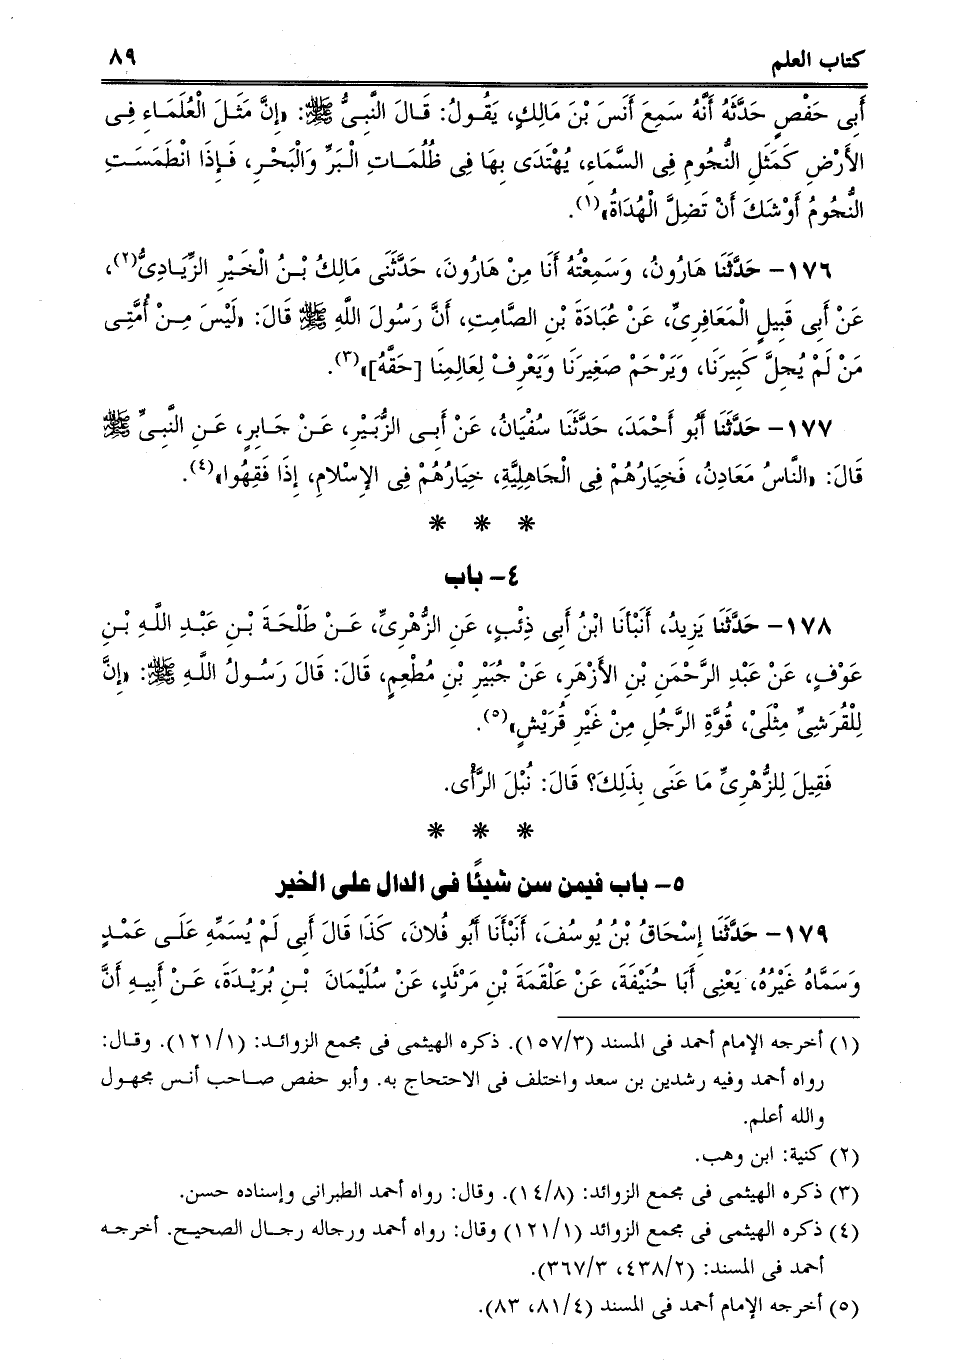 كتاب العلم ٨٩
أَبِى حَفْصٍ حَدَّثَهُ أَنَّهُ سَمِعَ أَنَسَ بْنَ مَالِكٍ، يَقُولُ: قَالَ النَّبِىُّ ﷺ: «إِنَّ مَثَلَ الْعُلَمَاءِ فِى
الأَرْضِ كَمَثَلِ النُّجُومِ فِى السَّمَاءِ، يُهْتَدَى بِهَا فِى ظُلُمَاتِ الْبَرِّ وَالْبَحْرِ، فَإِذَا انْطَمَسَتِ
النُّجُومُ أَوْشَكَ أَنْ تَضِلَّ الْهُدَاةُ»(١).
١٧٦- حَدَّثَنَا هَارُونُ، وَسَمِعْتُهُ أَنَا مِنْ هَارُونَ، حَدَّثَنِى مَالِكُ بْنُ الْخَيْرِ الزِّيَادِىُّ(٢)،
عَنْ أَبِى قَبِيلٍ الْمَعَافِرِىِّ، عَنْ عُبَادَةَ بْنِ الصَّامِتِ، أَنَّ رَسُولَ اللَّهِ ﷺ قَالَ: «لَيْسَ مِنْ أُمَّتِى
مَنْ لَمْ يُجِلَّ كَبِيرَنَا، وَيَرْحَمْ صَغِيرَنَا وَيَعْرِفْ لِعَالِمِنَا [حَقَّهُ]»(٣).
١٧٧- حَدَّثَنَا أَبُو أَحْمَدَ، حَدَّثَنَا سُفْيَانُ، عَنْ أَبِى الزُّبَيْرِ، عَنْ جَابِرٍ، عَنِ النَّبِىِّ ﷺ
قَالَ: «النَّاسُ مَعَادِنُ، فَخِيَارُهُمْ فِى الْجَاهِلِيَّةِ، خِيَارُهُمْ فِى الإِسْلاَمِ، إِذَا فَقِهُوا»(٤).
* * *
٤- باب
١٧٨- حَدَّثَنَا يَزِيدُ، أَنْبَأَنَا ابْنُ أَبِى ذِئْبٍ، عَنِ الزُّهْرِىِّ، عَنْ طَلْحَةَ بْنِ عَبْدِ اللَّهِ بْنِ
عَوْفٍ، عَنْ عَبْدِ الرَّحْمَنِ بْنِ الأَزْهَرِ، عَنْ جُبَيْرِ بْنِ مُطْعِمٍ، قَالَ: قَالَ رَسُولُ اللَّهِ ﷺ: «إِنَّ
لِلْقُرَشِىِّ مِثْلَىْ، قُوَّةِ الرَّجُلِ مِنْ غَيْرِ قُرَيْشٍ»(٥).
فَقِيلَ لِلزُّهْرِىِّ مَا عَنَى بِذَلِكَ؟ قَالَ: نُبْلَ الرَّأْىِ.
* * *
٥- باب فيمن سن شيئًا فى الدال على الخير
١٧٩- حَدَّثَنَا إِسْحَاقُ بْنُ يُوسُفَ، أَنْبَأَنَا أَبُو فُلاَنَ، كَذَا قَالَ أَبِى لَمْ يُسَمِّهِ عَلَى عَمْدٍ
وَسَمَّاهُ غَيْرُهُ، يَعْنِى أَبَا حُنَيْفَةَ، عَنْ عَلْقَمَةَ بْنِ مَرْثَدٍ، عَنْ سُلَيْمَانَ بْنِ بُرَيْدَةَ، عَنْ أَبِيهِ أَنَّ
(١) أخرجه الإمام أحمد فى المسند (١٥٧/٣). ذكره الهيثمى فى مجمع الزوائد: (١٢١/١). وقال:
رواه أحمد وفيه رشدين بن سعد واختلف فى الاحتجاج به. وأبو حفص صاحب أنس مجهول
والله أعلم.
(٢) كنية: ابن وهب.
(٣) ذكره الهيثمى فى مجمع الزوائد: (١٤/٨). وقال: رواه أحمد الطبرانى وإسناده حسن.
(٤) ذكره الهيثمى فى مجمع الزوائد (١٢١/١) وقال: رواه أحمد ورجاله رجال الصحيح. أخرجه
أحمد فى المسند: (٤٣٨/٢، ٣٦٧/٣).
(٥) أخرجه الإمام أحمد فى المسند (٨١/٤، ٨٣).